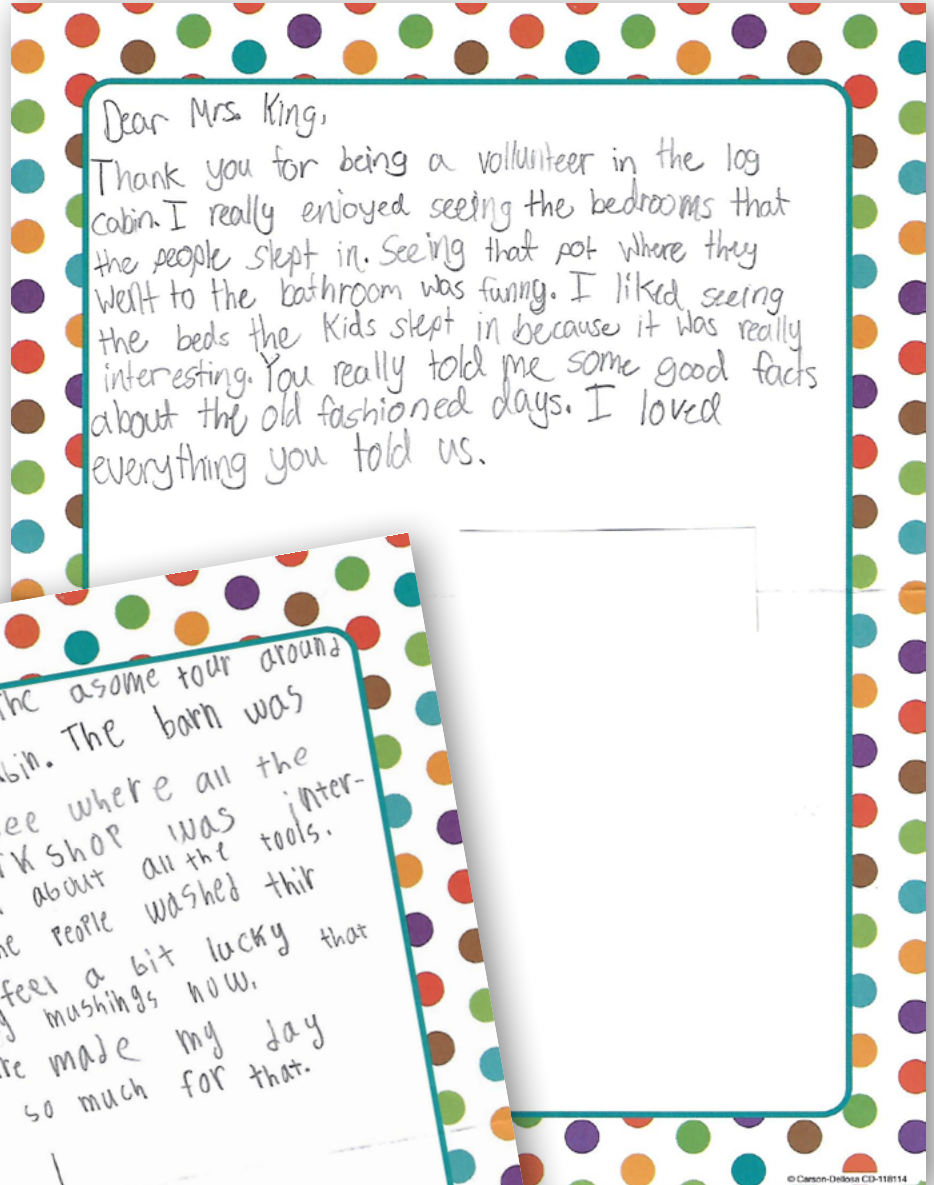 Dear Mrs. King,
Thank you for being a vollunteer in the log
cabin. I really enjoyed seeing the bedrooms that
the people slept in. Seeing that pot where they
went to the bathroom was funny. I liked seeing
the beds the Kids slept in because it was really
interesting. You really told me some good facts
about the old fashioned days. I loved
everything you told us.
the asome tour around
The barn was
see where all the
shop was inter-
about all the tools.
people washed thir
feel a bit lucky that
mushings now.
made my day
so much for that.
© Carson-Dellosa CD-118114